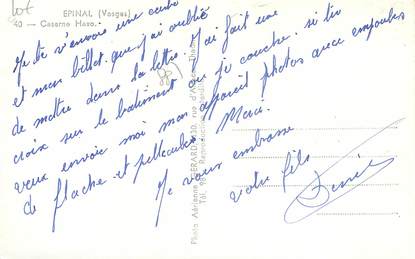 lot
EPINAL (Vosges)
40 — Caserne Haxo.
Je te n'envoie une carte
et mon billet que j'ai oublié
de mettre dans la lettre. J'ai fait une
croix sur le batiment ou je couche. si tu
veux envoie moi mon appareil photos avec empoules
de flache et pellicules. Merci.
Je vous embrasse
votre fils
Photo Aérienne GÉRARD
Reproduction
Tél. 98